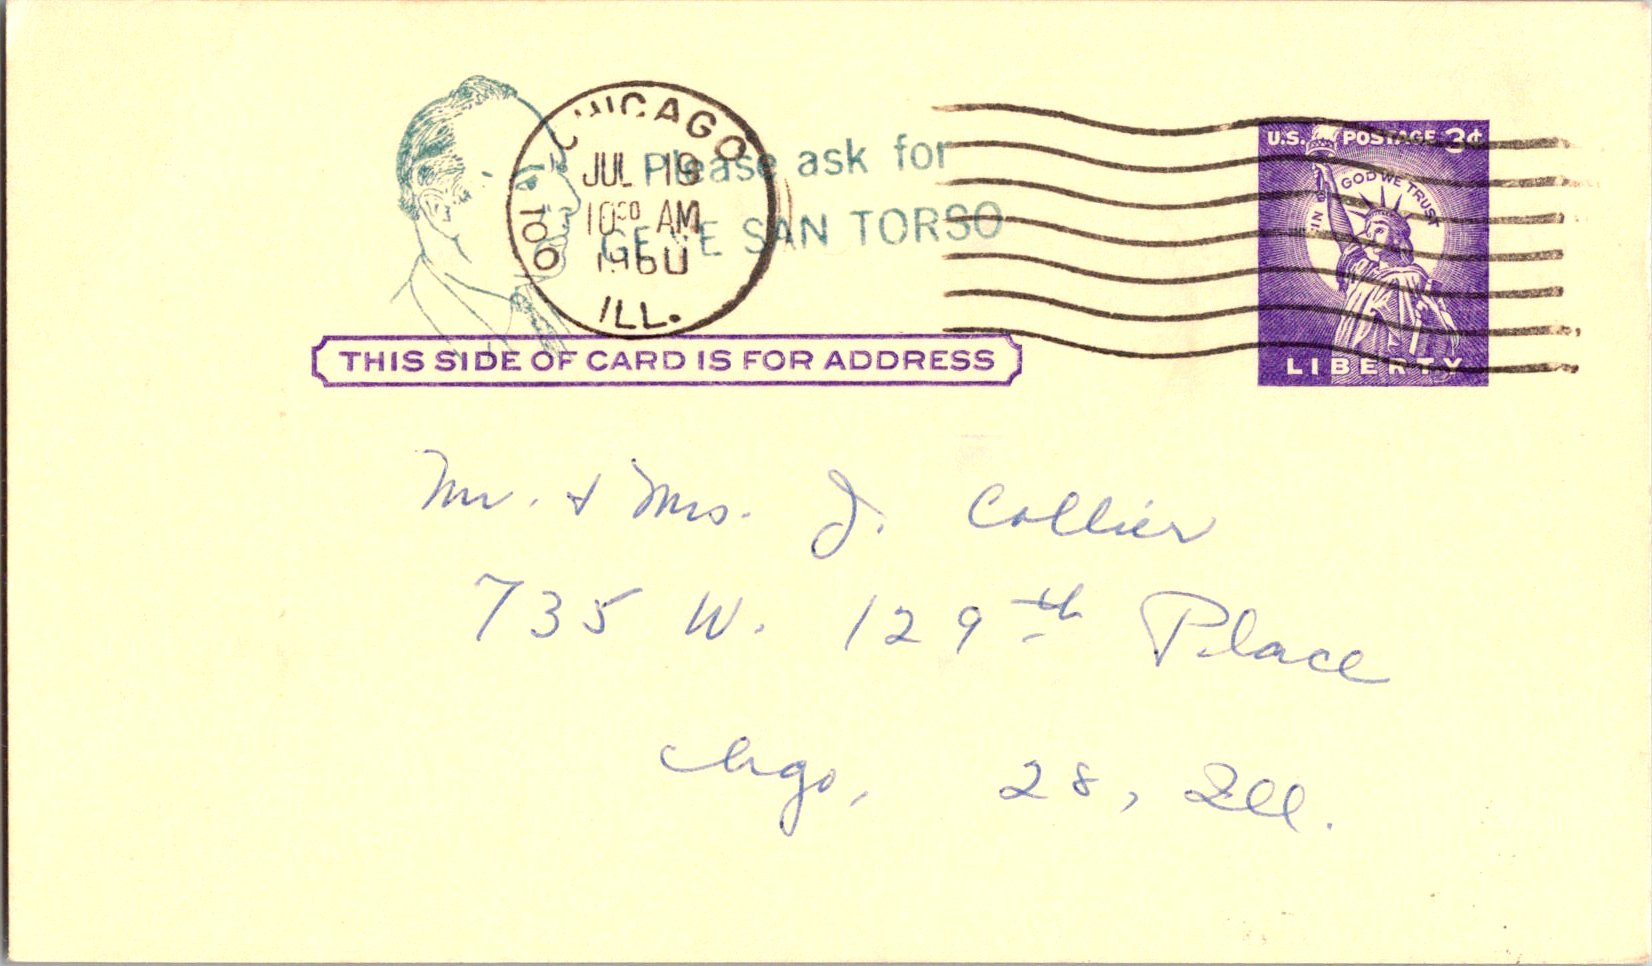 CHICAGO
JUL 19
10 30 AM
1960
ILL.
Please ask for
GENE SAN TORSO
U.S. POSTAGE 3¢
IN GOD WE TRUST
LIBERTY
THIS SIDE OF CARD IS FOR ADDRESS
Mr. & Mrs. J. Collier
735 W. 129th Place
Chgo, 28, Ill.